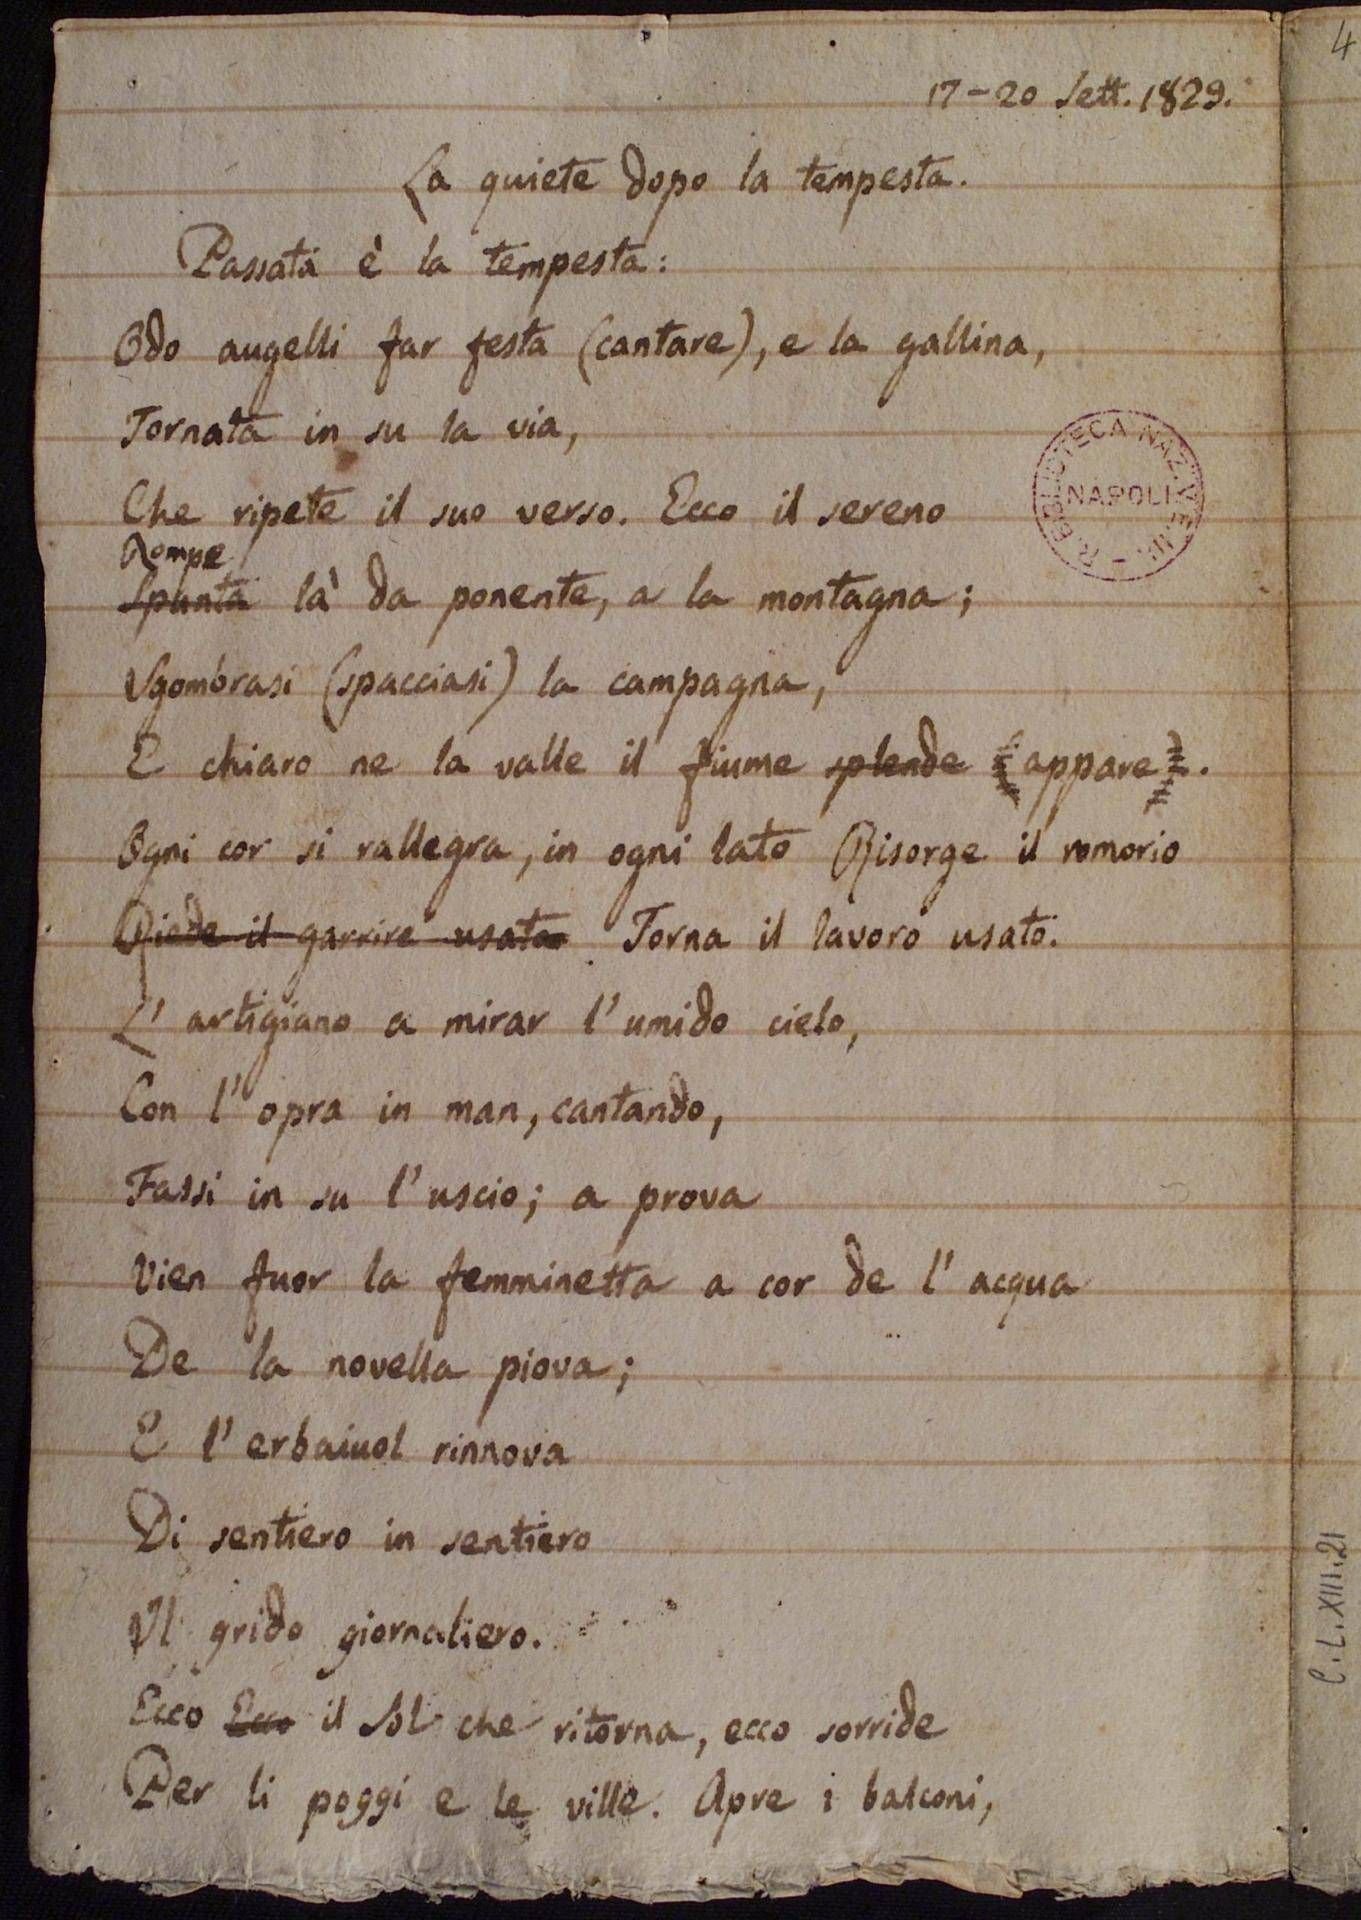 4
17-20 Sett. 1829.
La quiete dopo la tempesta.
Passata è la tempesta:
Odo augelli far festa (cantare), e la gallina,
Tornata in su la via,
Che ripete il suo verso. Ecco il sereno
Rompe
Spunta là da ponente, a la montagna;
Sgombrasi (spacciasi) la campagna,
E chiaro ne la valle il fiume splende (appare).
Ogni cor si rallegra, in ogni lato Risorge il romorio
Riede il garrire usato Torna il lavoro usato.
L' artigiano a mirar l' umido cielo,
Con l' opra in man, cantando,
Fassi in su l' uscio; a prova
Vien fuor la femminetta a cor de l' acqua
De la novella piova;
E l' erbaiuol rinnova
Di sentiero in sentiero
Il grido giornaliero.
Ecco Ecco il Sol che ritorna, ecco sorride
Per li poggi e le ville. Apre i balconi,
R. BIBLIOTECA NAZ. V. E. III.
NAPOLI
C.L.XIII.21